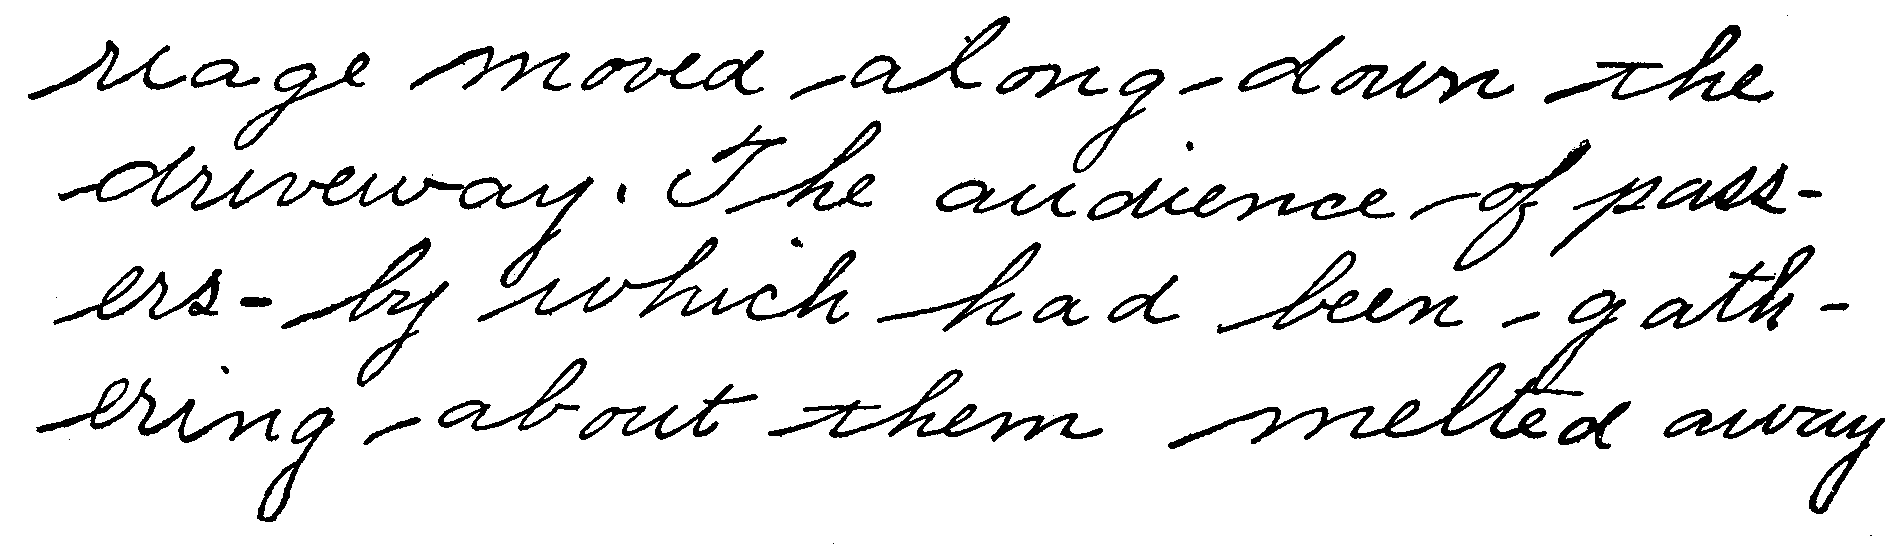 riage moved along down the
driveway. The audience of pass-
ers-by which had been gath-
ering about them melted away